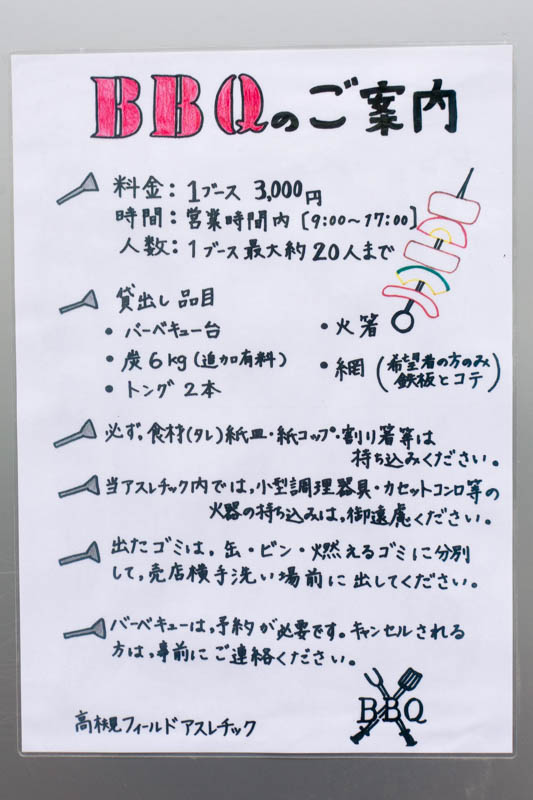 BBQのご案内
料金：1ブース 3,000円
時間：営業時間内［9:00〜17:00］
人数：1ブース最大約20人まで
貸出し品目
・バーベキュー台
・炭6kg（追加有料）
・トング2本
・火箸
・網（希望者の方のみ
鉄板とコテ）
必ず、食材(タレ)紙皿・紙コップ・割り箸等は
持ち込みください。
当アスレチック内では、小型調理器具・カセットコンロ等の
火器の持ち込みは、御遠慮ください。
出たゴミは、缶・ビン・燃えるゴミに分別
して、売店横手洗い場前に出してください。
バーベキューは、予約が必要です。キャンセルされる
方は、事前にご連絡ください。
BBQ
高榥フィールドアスレチック